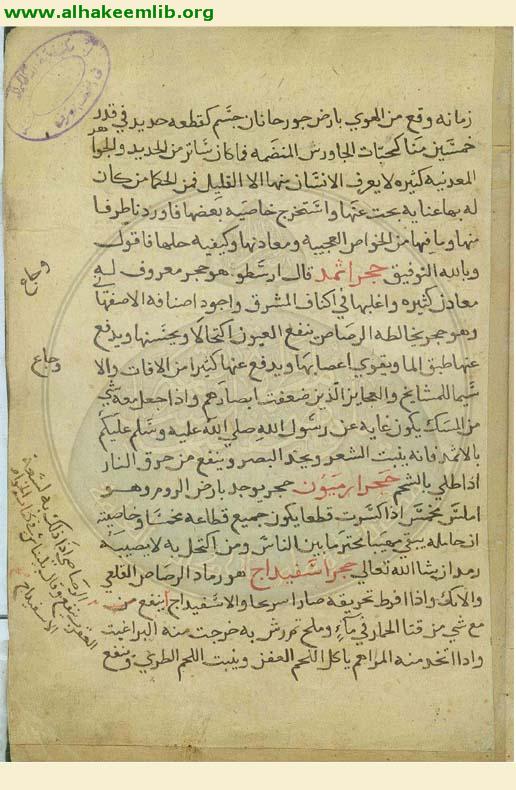 www.alhakeemlib.org
زمانه وقع من الهوي بارض جورجانان جسم كقطعه حديد في قدر
خمسين منا كحبات الجاورش المنضمه فما كان سائر من الحديد والجواهر
المعدنية كثيره لا يعرف الانسان منها الا القليل فمن الحكما من كان
له بها عنايه بحث عنها واستخرج خاصيه بعضها فاورد ناطرفا
منها وما فيها من الخواص العجيبه ومعادنها وكيفيه حلها فاقول
وبالله التوفيق حجر اثمد قال ارسطو هو حجر معروف له
معادن كثيره واغلبها في اكناف المشرق واجود اصنافه الاصفهاني
وهو حجر يخالطه الرصاص ينفع العيون اكتحالا ويحسنها ويدفع
عنها طبق الما ويقوي اعصابها ويدفع عنها كثيرا من الافات والا
سيما للمشايخ والعجايز الذين ضعفت ابصارهم واذا جعل معه شي
من المسك يكون غايه عن رسول الله صلي الله عليه وسلم عليكم
بالاثمد فانه ينبت الشعر ويحد البصر وينفع من حرق النار
اذا طلي بالشحم حجر ارميون حجر يوجد بارض الروم وهو
املس مخمس اذا كسرت قطعا يكون جميع قطاعه مخمسا وخاصيته
ان حامله يبقي مهيبا محترما بين الناس ومن اكتحل به لا يصيبه
رمد ان شا الله تعالي حجر اسفيداج هو رماد الرصاص القلعي
والانك واذا افرط تحريقه صار اسرنجا والاسفيداج ينفع من
مع شي من قثا الحمار في ماء وملح ثم رش به خرجت منه البراغيث
واذا اتخد منه المراهم ياكل اللحم العفن وينبت اللحم الطري وينفع
وجاع
وجاع
الرصاص اذا دلك به لسعة
العقرب ينفع وقال بليناس
الاسفيداج